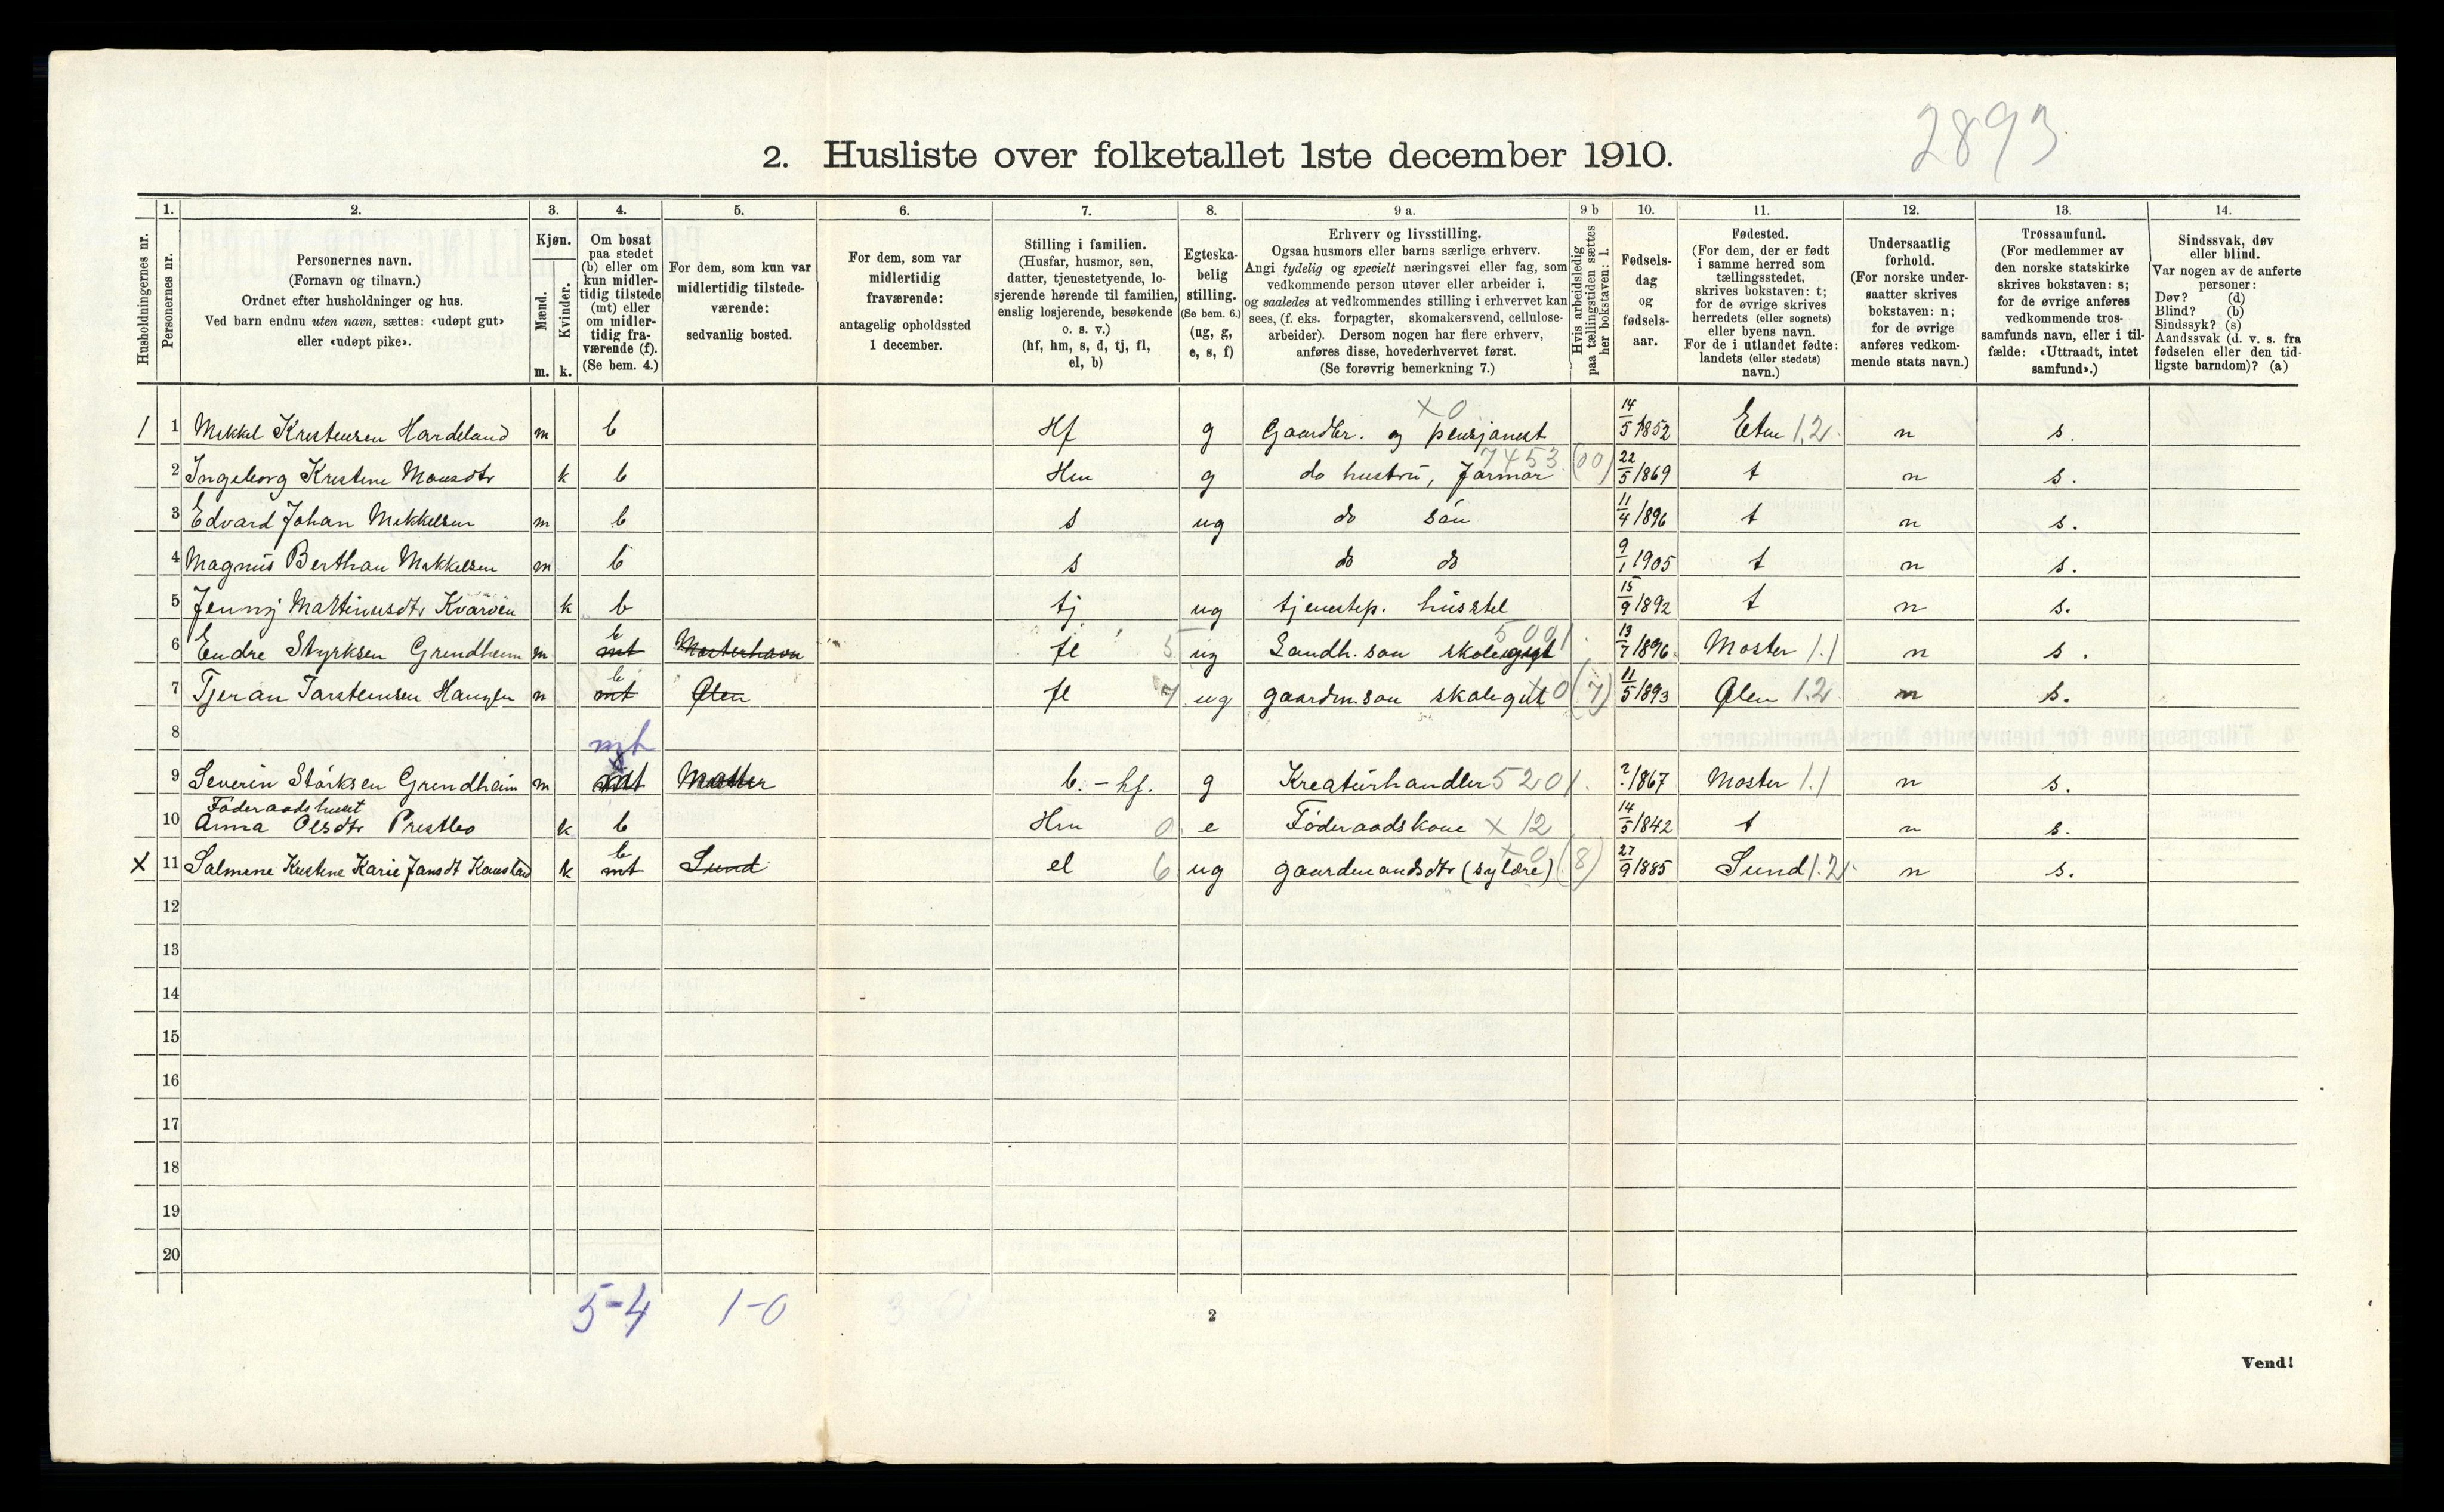 2893
2. Husliste over folketallet 1ste december 1910.
Husholdningernes nr.
1. Personernes nr.
2. Personernes navn. (Fornavn og tilnavn.) Ordnet efter husholdninger og hus. Ved barn endnu uten navn, sættes: «udøpt gut» eller «udøpt pike».
3. Kjøn. Mænd. m. Kvinder. k.
4. Om bosat paa stedet (b) eller om kun midlertidig tilstede (mt) eller om midlertidig fraværende (f). (Se bem. 4.)
5. For dem, som kun var midlertidig tilstedeværende: sedvanlig bosted.
6. For dem, som var midlertidig fraværende: antagelig opholdssted 1 december.
7. Stilling i familien. (Husfar, husmor, søn, datter, tjenestetyende, losjerende hørende til familien, enslig losjerende, besøkende o. s. v.) (hf, hm, s, d, tj, fl, el, b)
8. Egteskabelig stilling. (Se bem. 6.) (ug, g, e, s, f)
9 a. Erhverv og livsstilling. Ogsaa husmors eller barns særlige erhverv. Angi tydelig og specielt næringsvei eller fag, som vedkommende person utøver eller arbeider i, og saaledes at vedkommendes stilling i erhvervet kan sees, (f. eks. forpagter, skomakersvend, cellulosearbeider). Dersom nogen har flere erhverv, anføres disse, hovederhvervet først. (Se forøvrig bemerkning 7.)
9 b Hvis arbeidsledig paa tællingstiden sættes her bokstaven: l.
10. Fødselsdag og fødselsaar.
11. Fødested. (For dem, der er født i samme herred som tællingsstedet, skrives bokstaven: t; for de øvrige skrives herredets (eller sognets) eller byens navn. For de i utlandet fødte: landets (eller stedets) navn.)
12. Undersaatlig forhold. (For norske undersaatter skrives bokstaven: n; for de øvrige anføres vedkommende stats navn.)
13. Trossamfund. (For medlemmer av den norske statskirke skrives bokstaven: s; for de øvrige anføres vedkommende trossamfunds navn, eller i tilfælde: «Uttraadt, intet samfund».)
14. Sindssvak, døv eller blind. Var nogen av de anførte personer: Døv? (d) Blind? (b) Sindssyk? (s) Aandssvak (d. v. s. fra fødselen eller den tidligste barndom)? (a)
1 1 Mikkel Kristensen Hardeland m b Hf g Gaardbr. og pensjonert x 0 14/5 1852 Etne 1.2 n s.
2 Ingeborg Kristine Monsdtr k b Hm g do hustru, Jormor 7453 (00) 22/5 1869 t n s.
3 Edvard Johan Mikkelsen m b s ug do søn 11/4 1896 t n s.
4 Magnus Berthau Mikkelsen m b s do do 9/1 1905 t n s.
5 Jenny Martinusdtr Kvarven k b tj ug tjenestep. husstel 15/9 1892 t n s.
6 Endre Styrksen Grendheim m mt b Mosterhavn fl 5 ug Landh. søn skolegut 5001 13/7 1896 Moster 1.1 n s.
7 Tjeran Tarsteinsen m mt b Ølen fl 7 ug gaardm. søn skolegut x0 (7) 11/5 1893 Ølen 1.2 n s.
8
9 Severin Störksen Grendheim m mt mt Moster b. - hf. g Kreaturhandler 5201. ? 1867 Moster 1.1 n s.
Föderaadshuset
10 Anna Olsdtr Prestbo k b Hm 0 e Föderaadskone x 12 14/5 1842 t n s.
x 11 Salmene Kristine Karie Jansdt k mt b Sund el 6 ug gaardmandsdtr (sylære) x0 (8) 27/9 1885 Sund 1.2. n s.
12
13
14
15
16
17
18
19
20
5-4 1-0
2
Vend!